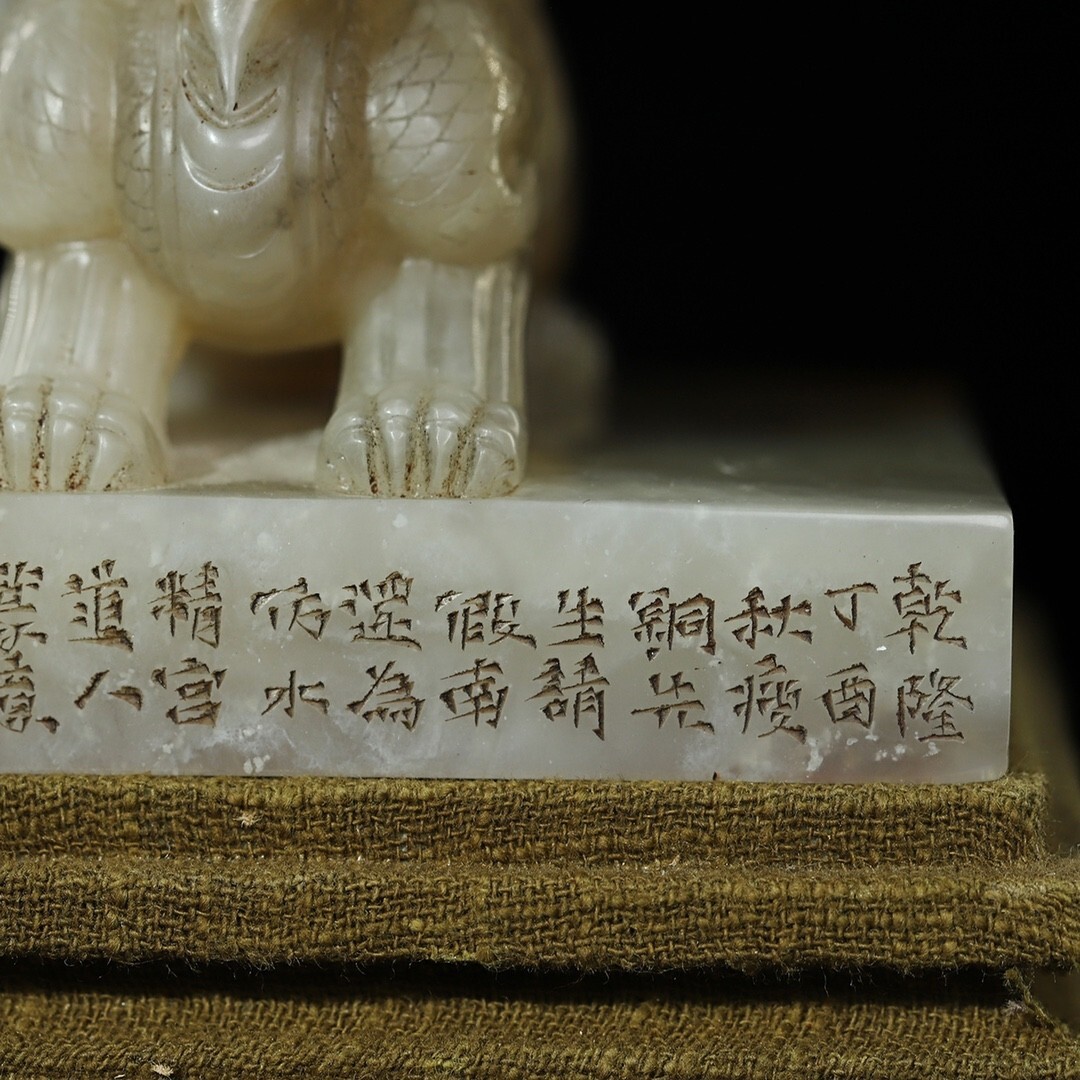 乾隆
丁酉
秋瘦
銅
生請
假南
還為
水
精宮
道人